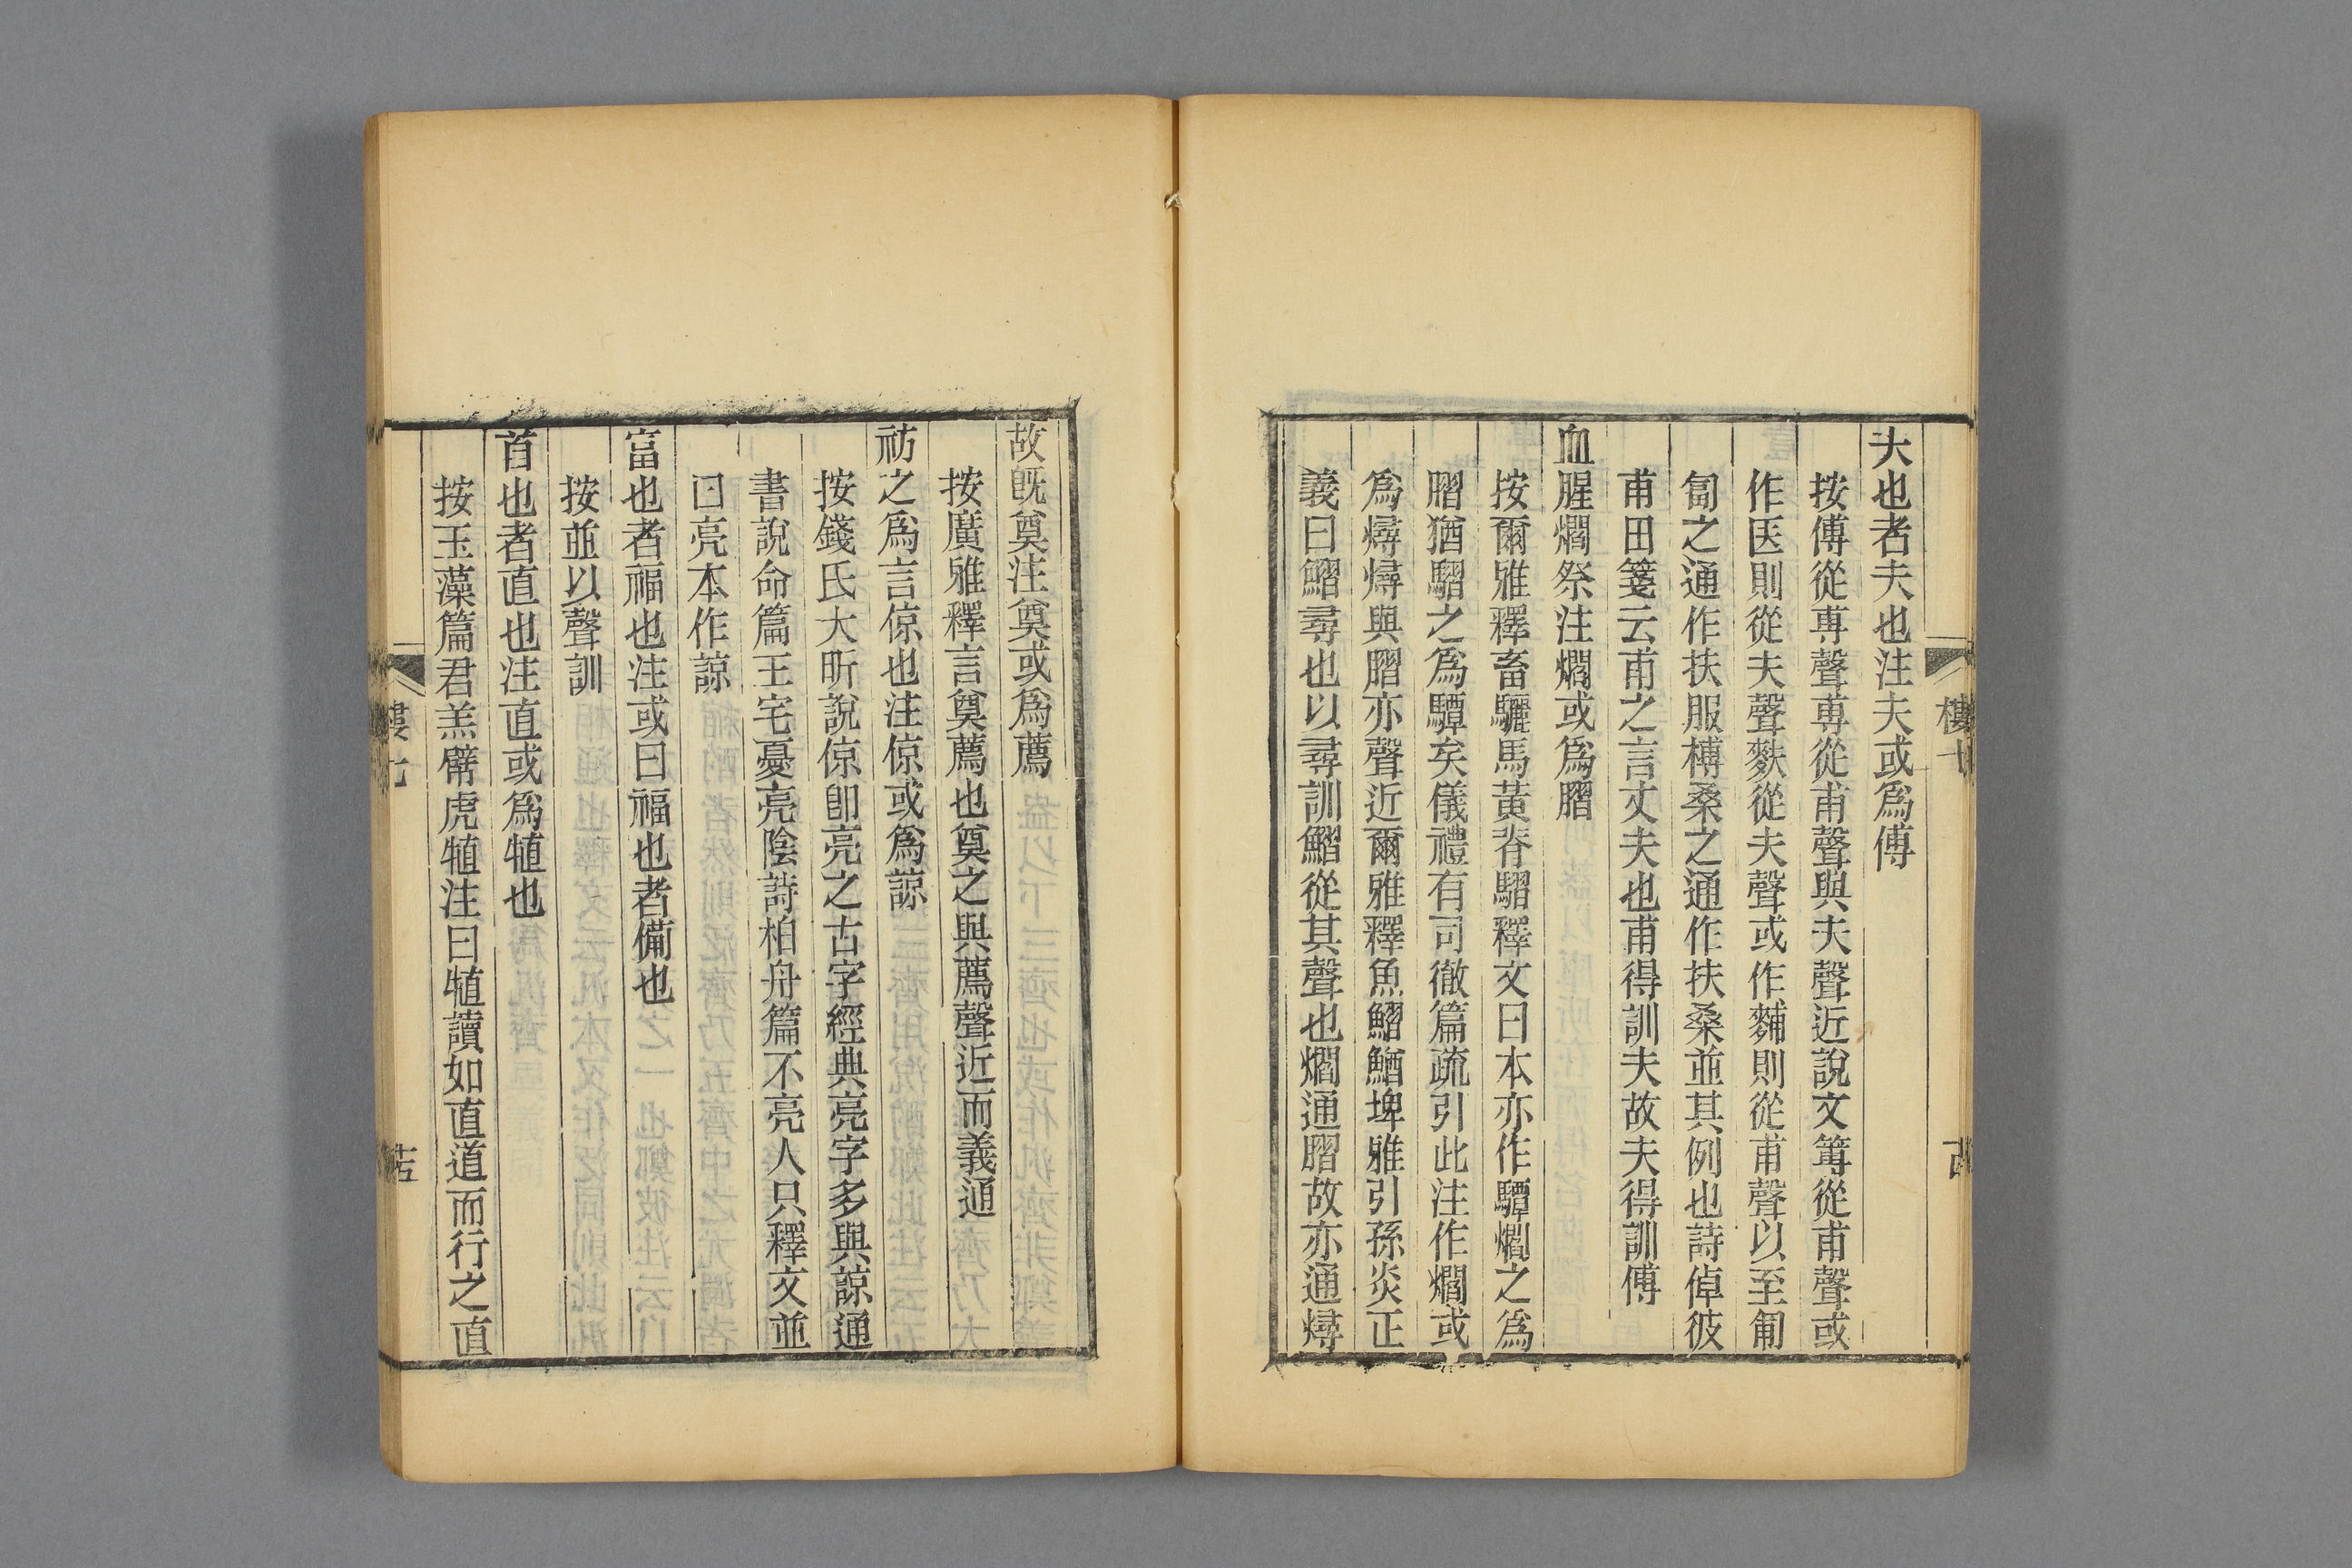 夫也者夫也注夫或爲傅
按傅從尃聲尃從甫聲與夫聲近說文䈏從甫聲或
作医則從夫聲麩從夫聲或作䴸則從甫聲以至匍
匐之通作扶服榑桑之通作扶桑並其例也詩倬彼
甫田箋云甫之言丈夫也甫得訓夫故夫得訓傅
血腥爓祭注爓或爲膶
按爾雅釋畜驪馬黃脊騽釋文曰本亦作驔爓之爲
膶猶騽之爲驔矣儀禮有司徹篇疏引此注作爓或
爲燖燖與膶亦聲近爾雅釋魚鰼鰌埤雅引孫炎正
義曰鰼尋也以尋訓鰼從其聲也爓通膶故亦通燖
樓七
故旣奠注奠或爲薦
按廣雅釋言奠薦也奠之與薦聲近而義通
祊之爲言倞也注倞或爲諒
按錢氏大昕說倞卽亮之古字經典亮字多與諒通
書說命篇王宅憂亮陰詩柏舟篇不亮人只釋文並
曰亮本作諒
富也者福也注或曰福也者備也
按並以聲訓
首也者直也注直或爲犆也
按玉藻篇君羔幦虎犆注曰犆讀如直道而行之直
樓七